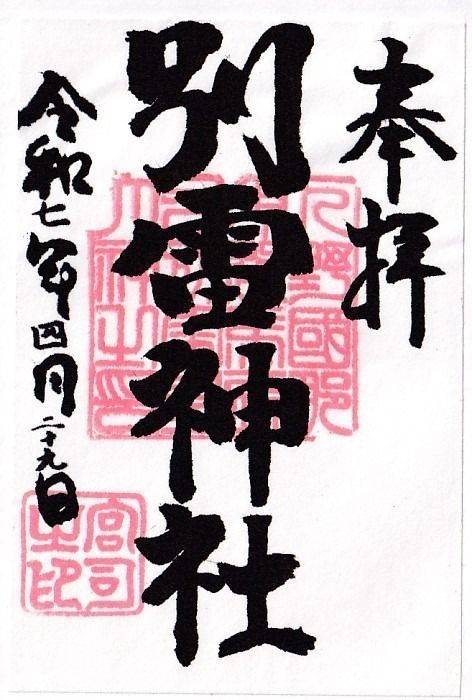 奉拝
別雷神社
令和七年四月二十九日
宮司之印